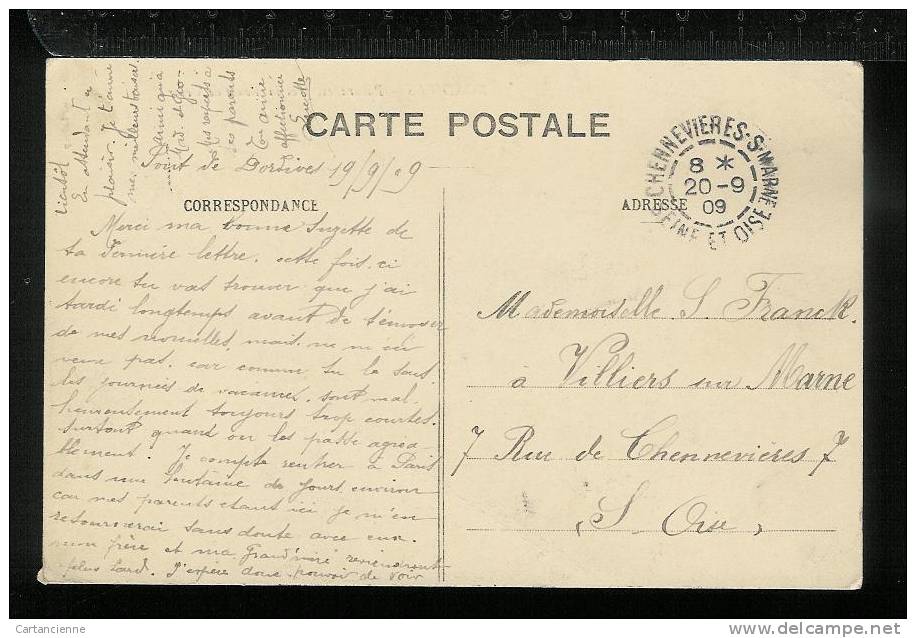 CARTE POSTALE
CORRESPONDANCE
ADRESSE
CHENNEVIERES-S-MARNE
8 *
20-9
09
SEINE ET OISE
Point de Dordives 19/9/09
Merci ma bonne Suzette de
ta dernière lettre. cette fois-ci
encore tu vas trouver que j'ai
tardé longtemps avant de t'envoyer
de mes nouvelles, mais ne m'en
veux pas, car comme tu le sais
les journées de vacances sont mal-
heureusement toujours trop courtes
surtout quand on les passe agréa-
blement. Je compte rentrer à Paris
dans une huitaine de jours environ
car mes parents étant ici je m'en
retournerai sans doute avec eux.
mon frère et ma grand'mère reviendront
plus tard. J'espère donc pouvoir te voir
bientôt
En attendant ce
plaisir, je t'envoie
mes meilleurs baisers
ainsi qu'à
Mad.
Mes respects à
tes parents
Ton amie
affectionnée
Mademoiselle S. Franck.
à Villiers sur Marne
7 Rue de Chennevières 7
(S. Oise)
Cartancienne
delcampe.net